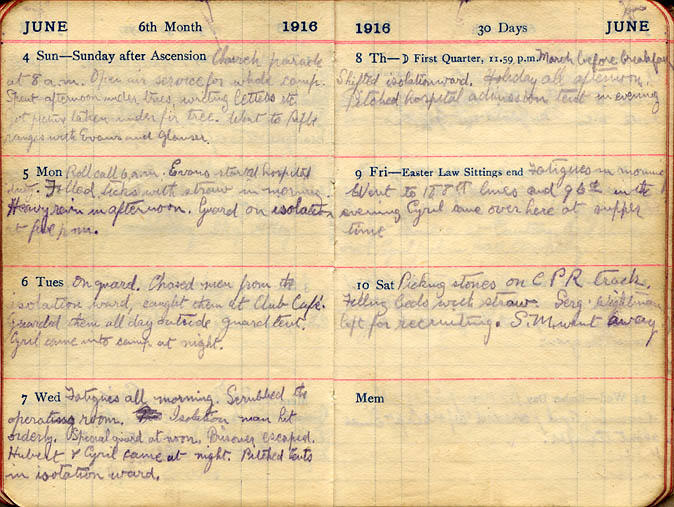 JUNE 6th Month 1916
4 Sun—Sunday after Ascension Church parade
at 8 a.m. Open air service for whole camp.
Spent afternoon under trees, writing letters etc
got picture taken under fir tree. Went to
ranges with Evans and
5 Mon Roll call 6 a.m. Evans started hospital
Filled ticks with straw in morning
Heavy rain in afternoon. Guard on isolation
at five p.m.
6 Tues On guard. Chased men from the
isolation ward, caught them at Club Café.
Guarded them all day outside guard tent.
Cyril came into camp at night.
7 Wed Fatigues all morning. Scrubbed the
operating room. Isolation man hit
orderly. Special guard at noon. Prisoner escaped.
Hubert & Cyril came at night. Pitched tents
in isolation ward.
1916 30 Days JUNE
8 Th—☽ First Quarter, 11.59 p.m. March before breakfast
Shifted isolation ward. Holiday all afternoon.
Pitched hospital admission tent in evening
9 Fri—Easter Law Sittings end Fatigues in morning
Went to 188th lines and 96th in the
evening Cyril came over here at supper
time
10 Sat Picking stones on C P R track.
Filling beds with straw. Serg.
left for recruiting. S.M. went away
Mem